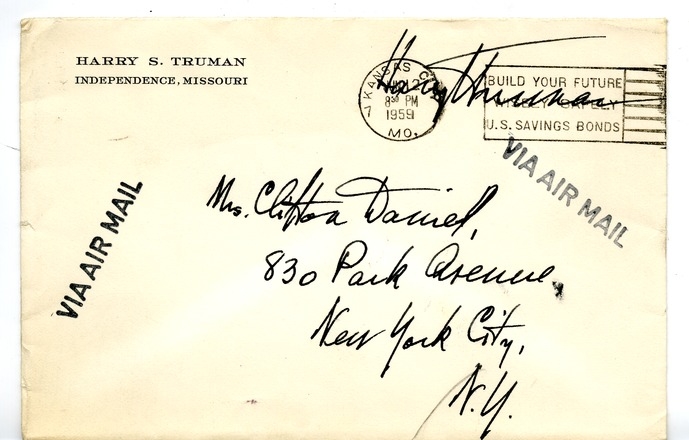 HARRY S. TRUMAN
INDEPENDENCE, MISSOURI
Harry Truman
KANSAS CITY
12
8 30 PM
1959
MO.
BUILD YOUR FUTURE
WISELY-SAFELY
U.S. SAVINGS BONDS
VIA AIR MAIL
VIA AIR MAIL
Mrs. Clifton Daniel,
830 Park Avenue,
New York City,
N.Y.